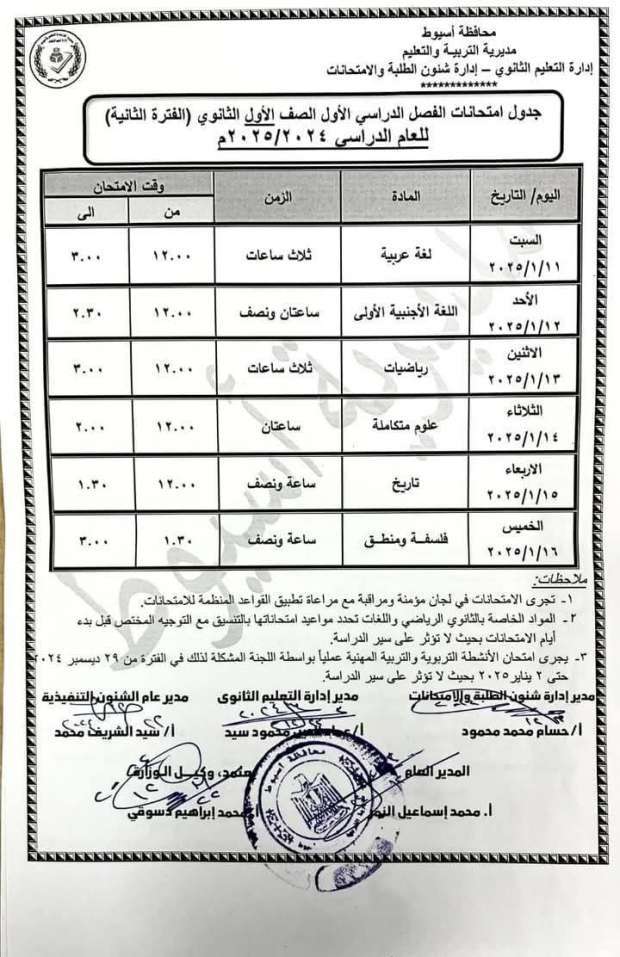 محافظة أسيوط
مديرية التربية والتعليم
إدارة التعليم الثانوي – إدارة شئون الطلبة والامتحانات
*************
جدول امتحانات الفصل الدراسي الأول الصف الأول الثانوي (الفترة الثانية)
للعام الدراسي ٢٠٢٥/٢٠٢٤م
اليوم/ التاريخ المادة الزمن وقت الامتحان
من الى
السبت ٢٠٢٥/١/١١ لغة عربية ثلاث ساعات ١٢.٠٠ ٣.٠٠
الأحد ٢٠٢٥/١/١٢ اللغة الأجنبية الأولى ساعتان ونصف ١٢.٠٠ ٢.٣٠
الاثنين ٢٠٢٥/١/١٣ رياضيات ثلاث ساعات ١٢.٠٠ ٣.٠٠
الثلاثاء ٢٠٢٥/١/١٤ علوم متكاملة ساعتان ١٢.٠٠ ٢.٠٠
الاربعاء ٢٠٢٥/١/١٥ تاريخ ساعة ونصف ١٢.٠٠ ١.٣٠
الخميس ٢٠٢٥/١/١٦ فلسفة ومنطق ساعة ونصف ١.٣٠ ٣.٠٠
ملاحظات:
١- تجرى الامتحانات في لجان مؤمنة ومراقبة مع مراعاة تطبيق القواعد المنظمة للامتحانات.
٢- المواد الخاصة بالثانوي الرياضي واللغات تحدد مواعيد امتحاناتها بالتنسيق مع التوجيه المختص قبل بدء
أيام الامتحانات بحيث لا تؤثر على سير الدراسة.
٣- يجرى امتحان الأنشطة التربوية والتربية المهنية عملياً بواسطة اللجنة المشكلة لذلك في الفترة من ٢٩ ديسمبر ٢٠٢٤
حتى ٢ يناير ٢٠٢٥ بحيث لا تؤثر على سير الدراسة.
مدير إدارة شئون الطلبة والامتحانات مدير إدارة التعليم الثانوي مدير عام الشئون التنفيذية
أ/ حسام محمد محمود محمود سيد أ/ سيد الشريف محمد
المدير العام يعتمد، وكيل الوزارة
أ. محمد إسماعيل النمر محمد إبراهيم دسوقي
محافظة اسيوط